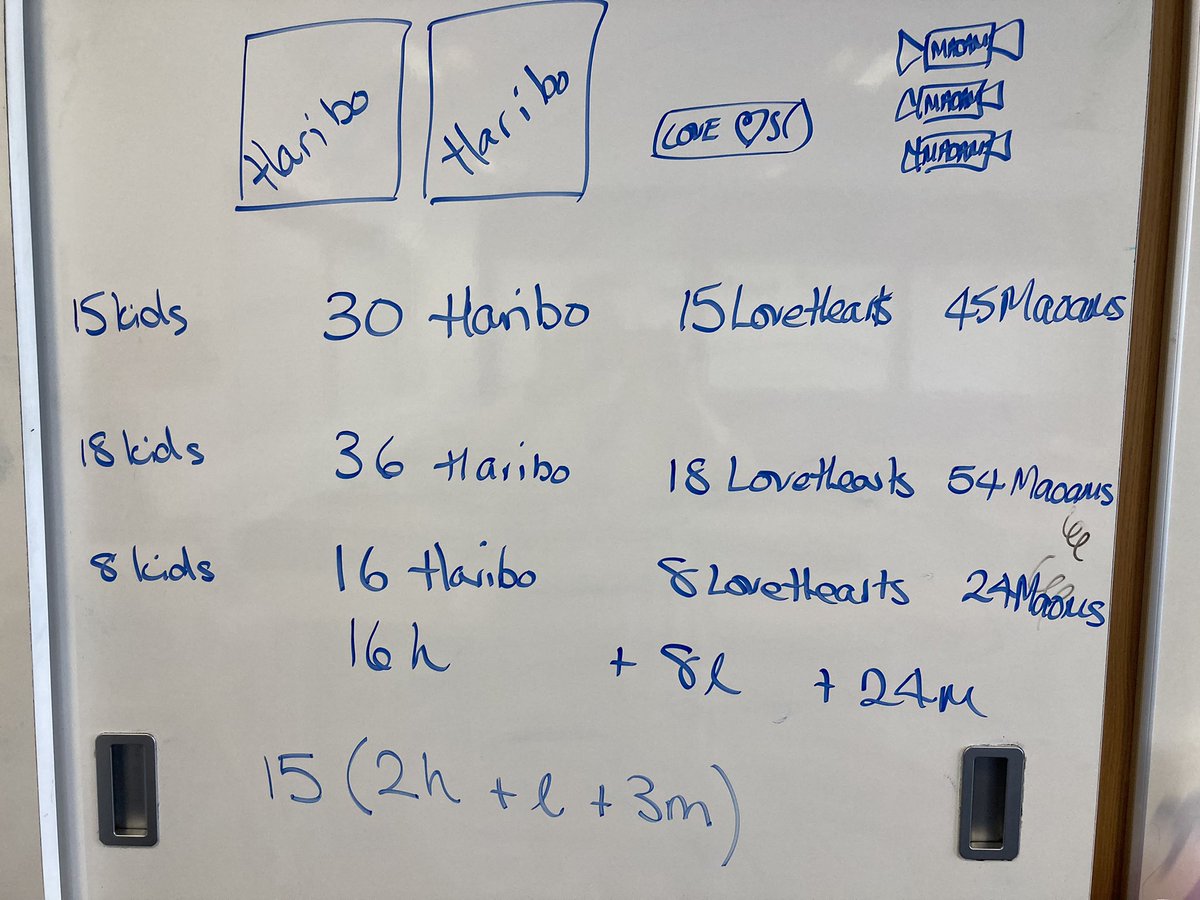 Haribo Haribo LOVE ♡S MAOAM
MAOAM
MAOAM
15 kids 30 Haribo 15 LoveHearts 45 Maoams
18 kids 36 Haribo 18 LoveHearts 54 Maoams
8 kids 16 Haribo 8 LoveHearts 24 Maoms
16h + 8l + 24m
15 (2h + l + 3m)